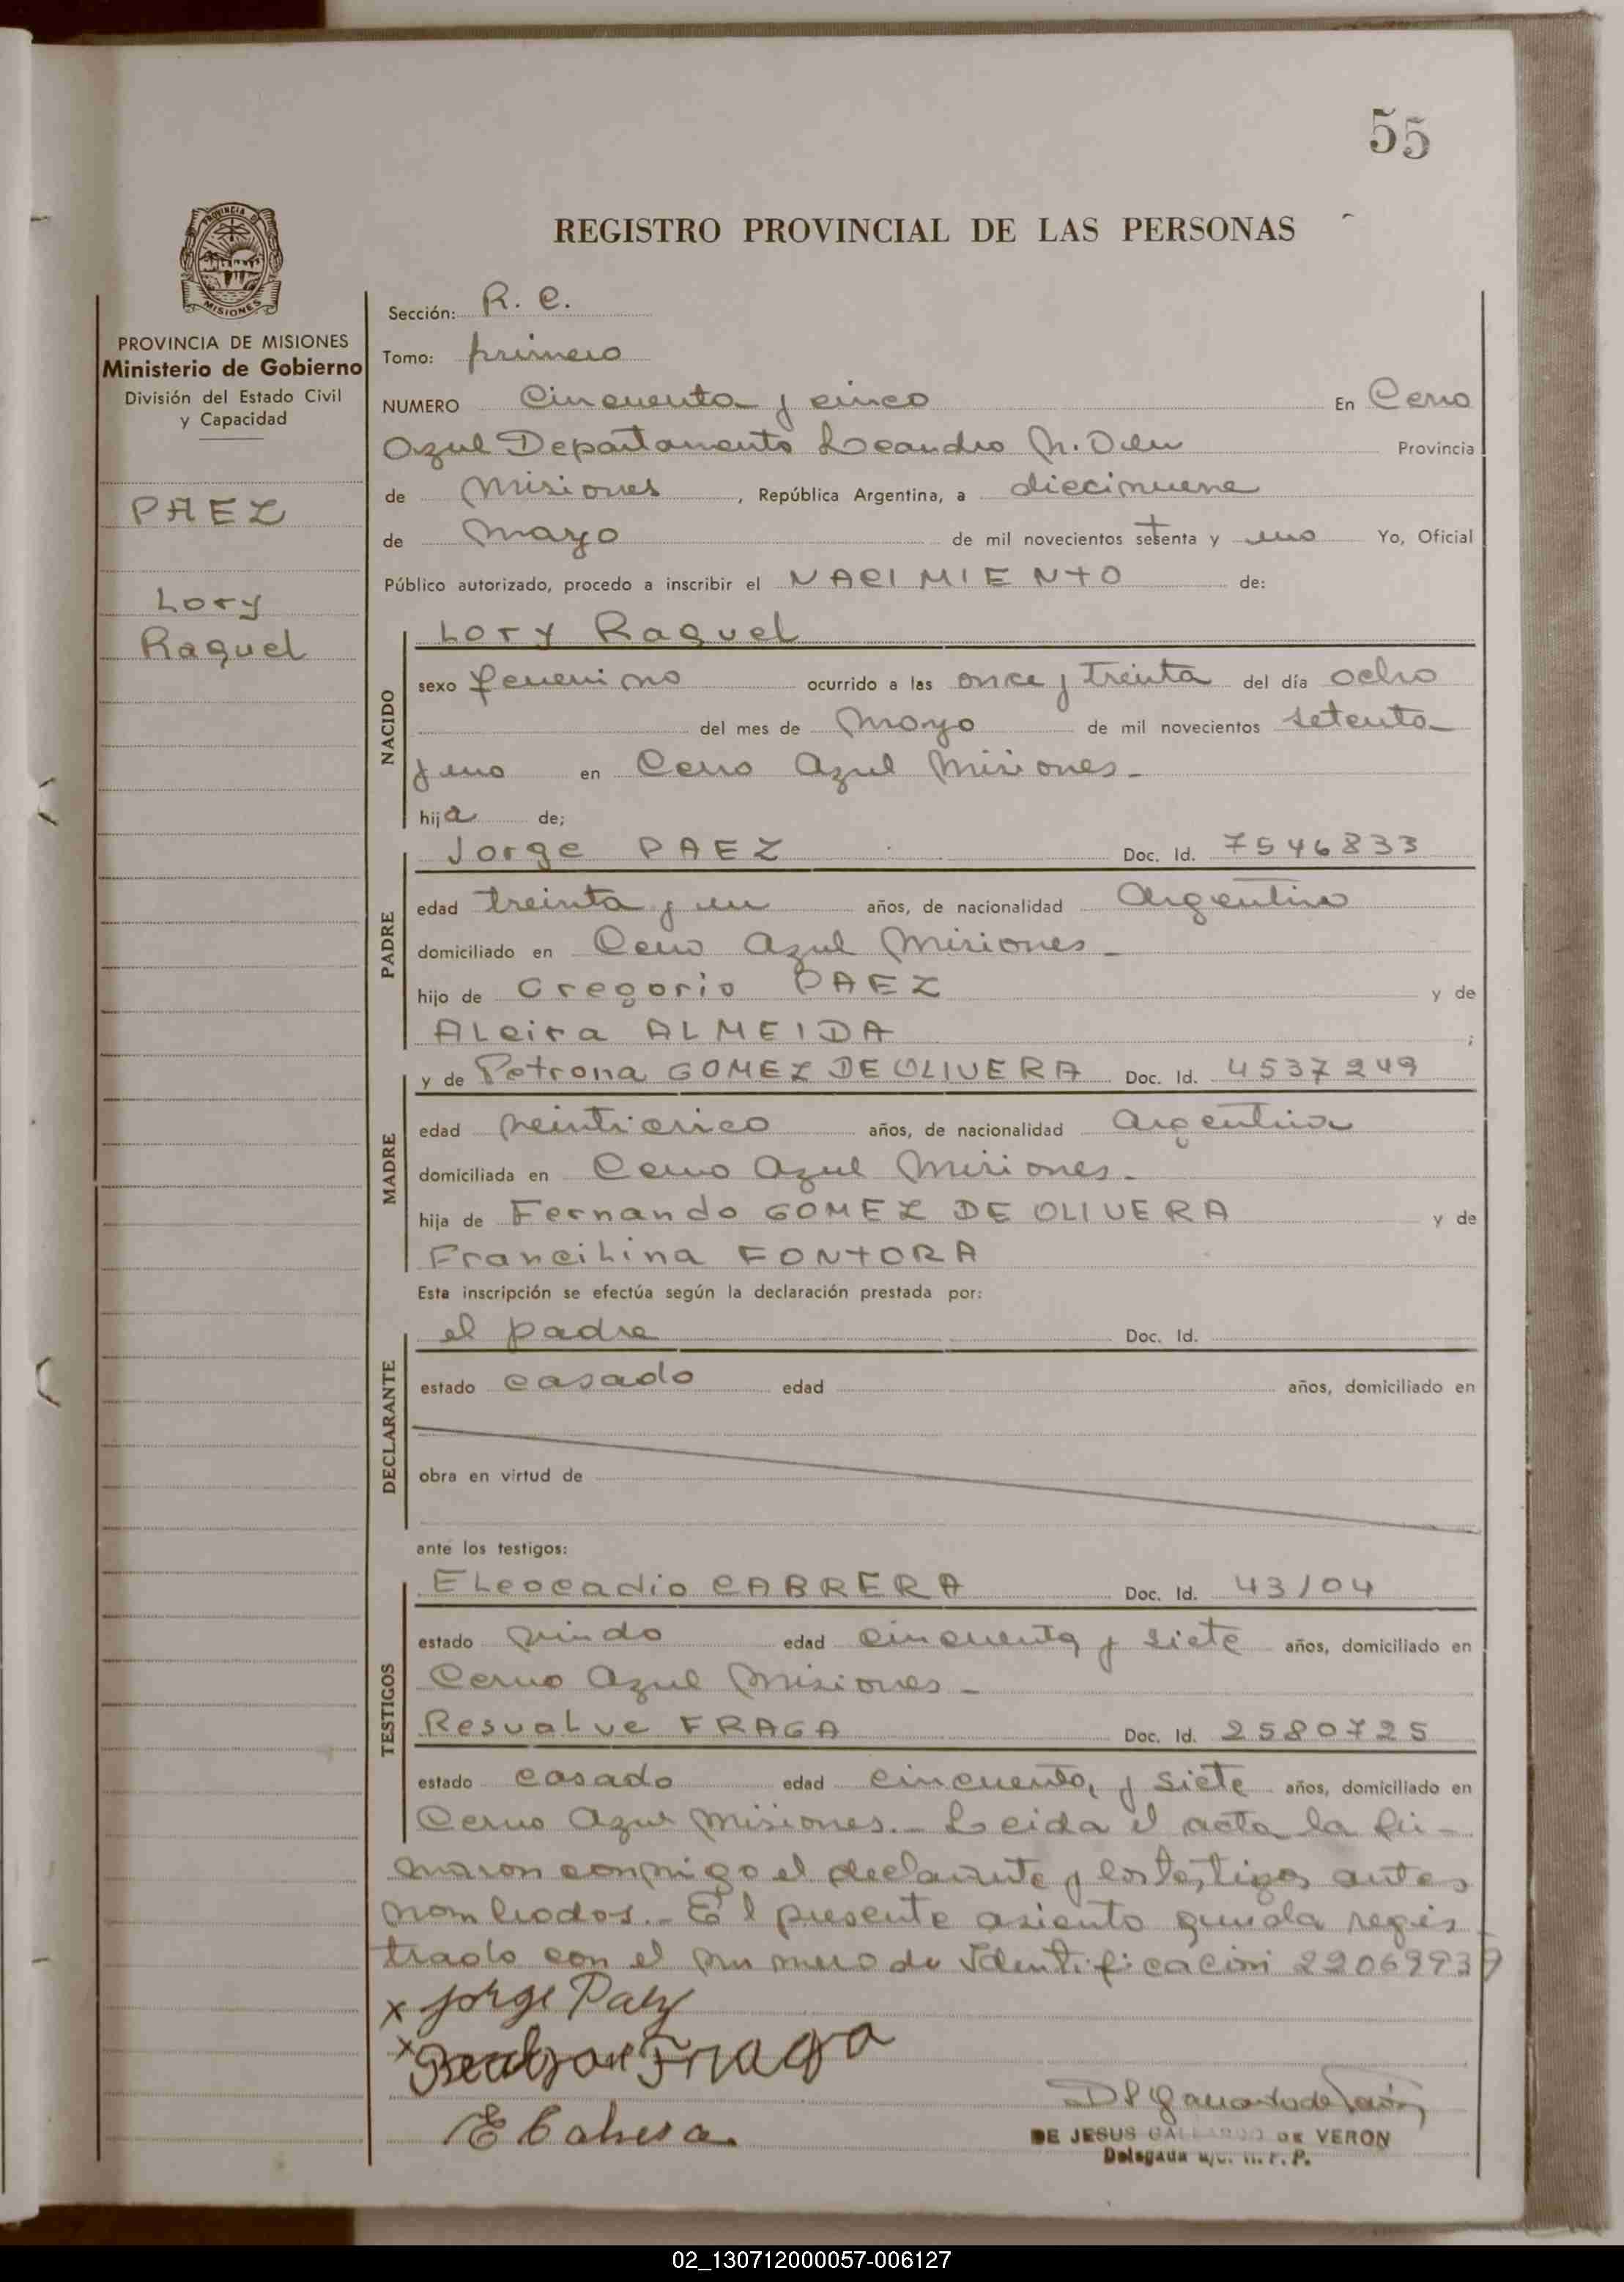 55
REGISTRO PROVINCIAL DE LAS PERSONAS
PROVINCIA DE
MISIONES
PROVINCIA DE MISIONES
Ministerio de Gobierno
División del Estado Civil
y Capacidad
PAEZ
Lory
Raquel
Sección: R. C.
Tomo: primero
NUMERO Cincuenta y cinco En Cerro
Azul Departamento Leandro N. Alem Provincia
de Misiones, República Argentina, a diecinueve
de Mayo de mil novecientos setenta y uno Yo, Oficial
Público autorizado, procedo a inscribir el NACIMIENTO de:
NACIDO
Lory Raquel
sexo femenino ocurrido a las once y treinta del día ocho
del mes de Mayo de mil novecientos setenta
y uno en Cerro Azul Misiones-
hija de;
PADRE
Jorge PAEZ Doc. Id. 7546833
edad treinta y un años, de nacionalidad Argentino
domiciliado en Cerro Azul Misiones-
hijo de Gregorio PAEZ y de
ALcira ALMEIDA ;
MADRE
y de Petrona GOMEZ DE OLIVERA Doc. Id. 4537249
edad veinticinco años, de nacionalidad Argentina
domiciliada en Cerro Azul Misiones-
hija de Fernando GOMEZ DE OLIVERA y de
Francilina FONTORA
Esta inscripción se efectúa según la declaración prestada por:
DECLARANTE
el padre Doc. Id.
estado casado edad años, domiciliado en
obra en virtud de
ante los testigos:
TESTIGOS
ELeocadio CABRERA Doc. Id. 43104
estado viudo edad cincuenta y siete años, domiciliado en
Cerro Azul Misiones-
Resvalve FRAGA Doc. Id. 2580725
estado casado edad cincuenta y siete años, domiciliado en
Cerro Azul Misiones.- Leida el acta la fir-
maron conmigo el declarante y los testigos antes
nombrados.- El presente asiento queda regis
trado con el numero de Identificación
x Jorge Paez
x Fraga
E Cabrera
DE JESUS GALLARDO DE VERON
Delegada
02_130712000057-006127